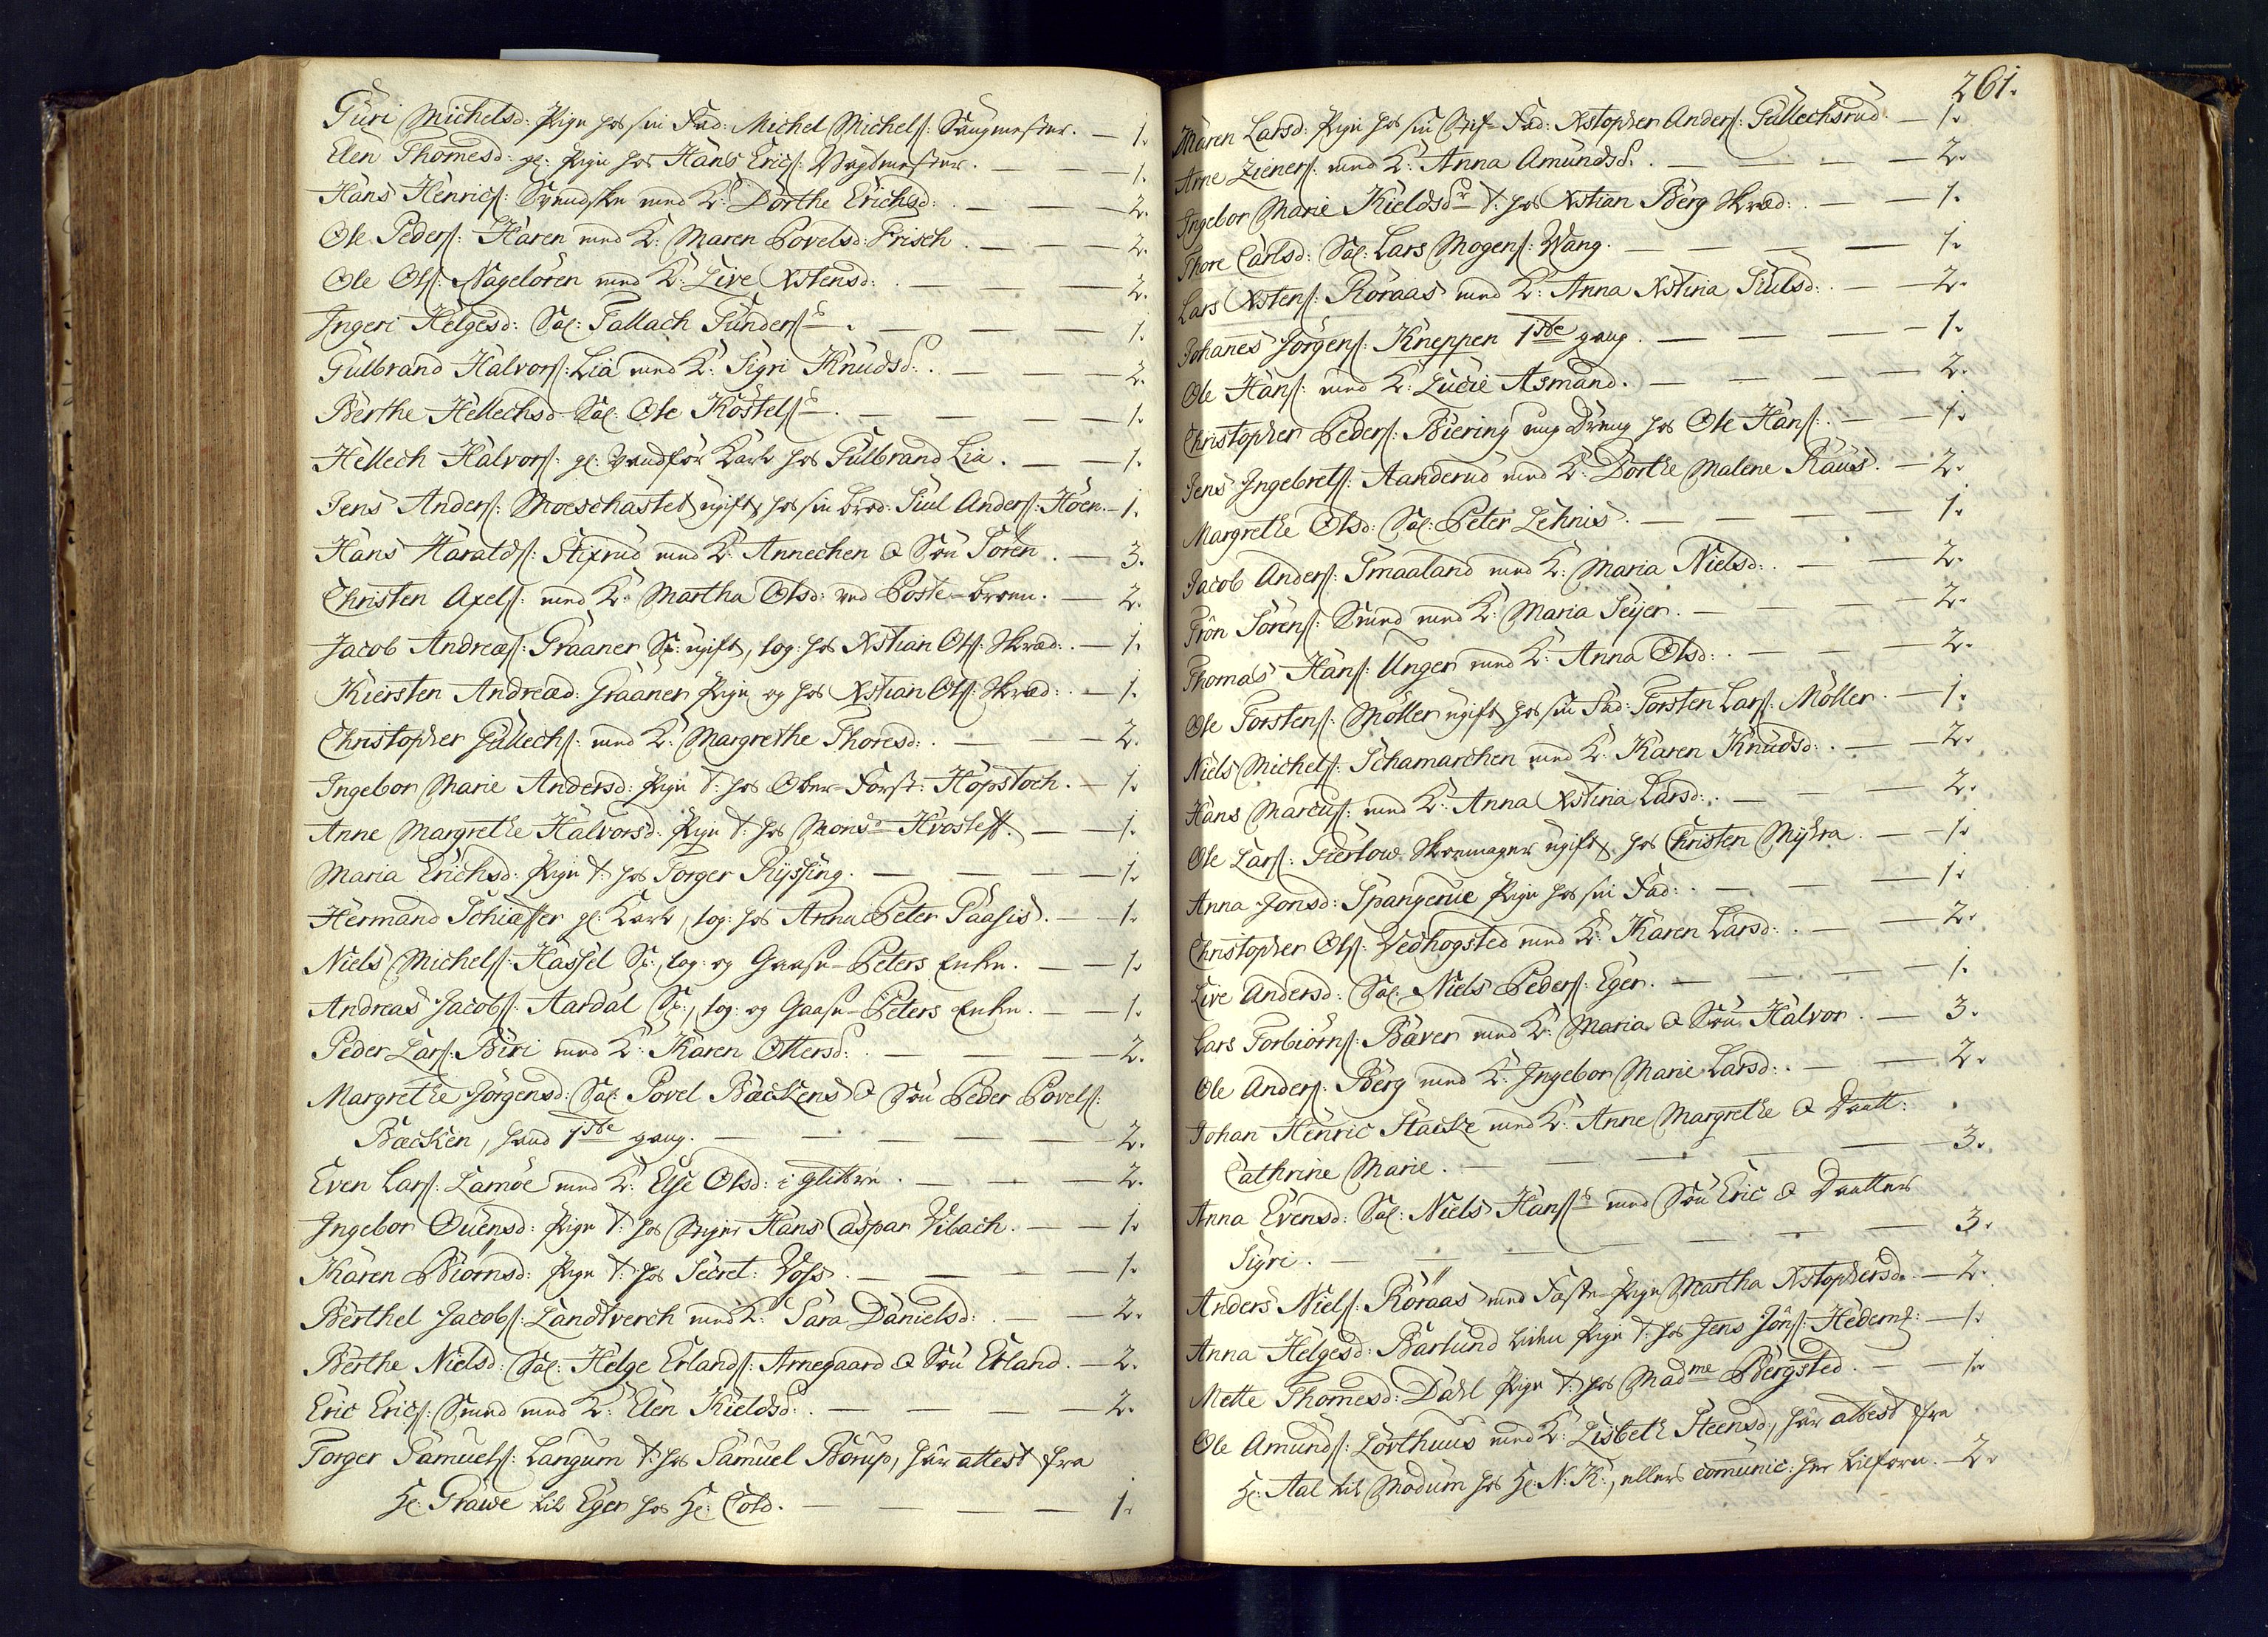 Guri Michelsd: Pige hos sin Fad: Michel Michels: Sangmester. — 1.
Elen Thomesd: gl: Pige hos Hans Erics: Vagtmester. — 1.
Hans Henrics: Svendske med K: Dorthe Erichsd: — 2.
Ole Peders: Haren med K: Maren Povelsd: Frisch. — 2.
Ole Ols: Nageloren med K: Live Xstensd: — 2.
Ingeri Helgesd: Sal: Tallach Gunders: — 1.
Gulbrand Halvors: Lia med K: Sigri Knudsd: — 2.
Berthe Hellechsd: Sal: Ole Kostels: — 1.
Hellech Halvors: gl: vandför Karl hos Gulbrand Lia. — 1.
Jens Anders: Moeschastet ugift, hos sin brod: Siul Anders: Höen. — 1.
Hans Haralds: Stixrud med K: Annechen & Sön Sören. — 3.
Christen Axels: med K: Martha Olsd: ved Poste-broen. — 2.
Jacob Andreæs: Graaner Sv: ugift, log: hos Xstian Ols: Skræd: — 1.
Kiersten Andread: Graaner Pige og hos Xstian Ols: Skræd: — 1.
Christopher Gullechs: med K: Margrethe Thoresd: — 2.
Ingebor Marie Andersd: Pige t: hos Ober-Forst: Hopstoch. — 1.
Anne Margrethe Halvorsd: Pige t: hos Monsr Hvosleff. — 1.
Maria Erichsd: Pige t: hos Torger Ryssing. — 1.
Hermand Schiæffer gl: Karl, log: hos Anna Peter Paasis. — 1.
Niels Michels: Hassel Sv:, log: og Gaase-Peters Enke. — 1.
Andreas Jacobs: Aardal Sv:, log: og Gaase-Peters Enke. — 1.
Peder Lars: Biri med K: Karen Ottersd: — 2.
Margrethe Jörgensd: Sal: Povel Bæckens & Sön Peder Povels:
Bæcken, hand 1ste gang. — 2.
Even Lars: Lamöe med K: Else Olsd: i glitre. — 2.
Ingebor Ouensd: Pige t: hos Seigr Hans Caspar Vibach. — 1.
Karen Biörnsd: Pige t: hos Secret: Voss. — 1.
Berthel Jacobs: Landtverch med K: Sara Danielsd: — 2.
Berthe Nielsd: Sal: Helge Erlands: Arnegaard & Sön Erland. — 2.
Eric Erics: Smed med K: Elen Kieldsd: — 2.
Torger Samuels: Langum t: hos Samuel Borup, har attest fra
Hr: Grawe til Eger hos Hr: Cold. — 1.
261.
Maren Larsd: Pige hos sin Stif-Fad: Xstopher Anders: Gullechsrud. — 1.
Arne Zieners: med K: Anna Amundsd: — 2.
Ingebor Marie Kieldsdr t: hos Xstian Berg Skræd: — 1.
Thore Carlsd: Sal: Lars Mogens: Wang. — 1.
Lars Xstens: Röraas med K: Anna Xstina Siulsd: — 2.
Johanes Jörgens: Kneppen 1ste gang. — 1.
Ole Hans: med K: Lucie Asmand. — 2.
Christopher Peders: Biering ung Dreng hos Ole Hans: — 1.
Jens Ingebrets: Aanderud med K: Dorthe Malene Raus. — 2.
Margrethe Olsd: Sal: Peter Lehnis. — 1.
Jacob Anders: Smaaland med K: Maria Nielsd: — 2.
Trön Sörens: Smed med K: Maria Seyer. — 2.
Thomas Hans: Unger med K: Anna Olsd: — 2.
Ole Torstens: Möller ugift, hos sin Fad: Torsten Lars: Möller. — 1.
Niels Michels: Schamarchen med K: Karen Knudsd: — 2.
Hans Marcus: med K: Anna Xstina Larsd: — 2.
Ole Lars: Gierlow Skoemager ugift, hos Christen Myhra. — 1.
Anna Jonsd: Spangerue Pige hos sin Fad: — 1.
Christopher Ols: Vedhogsted med K: Karen Larsd: — 2.
Live Andersd: Sal: Niels Peders: Eger. — 1.
Lars Torbiörns: Bæver med K: Maria & Sön Halvor. — 3.
Ole Anders: Berg med K: Ingebor Marie Larsd: — 2.
Johan Henric Stacke med K: Anne Margrethe & Daatt:
Cathrine Marie. — 3.
Anna Evensd: Sal: Niels Hans: med Sön Eric & Daatter
Sigri. — 3.
Anders Niels: Röraas med Fæste-Pige Martha Xstophersd: — 2.
Anna Helgesd: Barlund liden Pige t: hos Jens Jöns: Hedemf: — 1.
Mette Thomesd: Dahl Pige t: hos Madme Bergsted. — 1.
Ole Amunds: Lorthuus med K: Lisbeth Steensd:, har attest fra
Hr: Aal til Modum hos Hr: N: K:, ellers comunic: her tilforn. — 2.